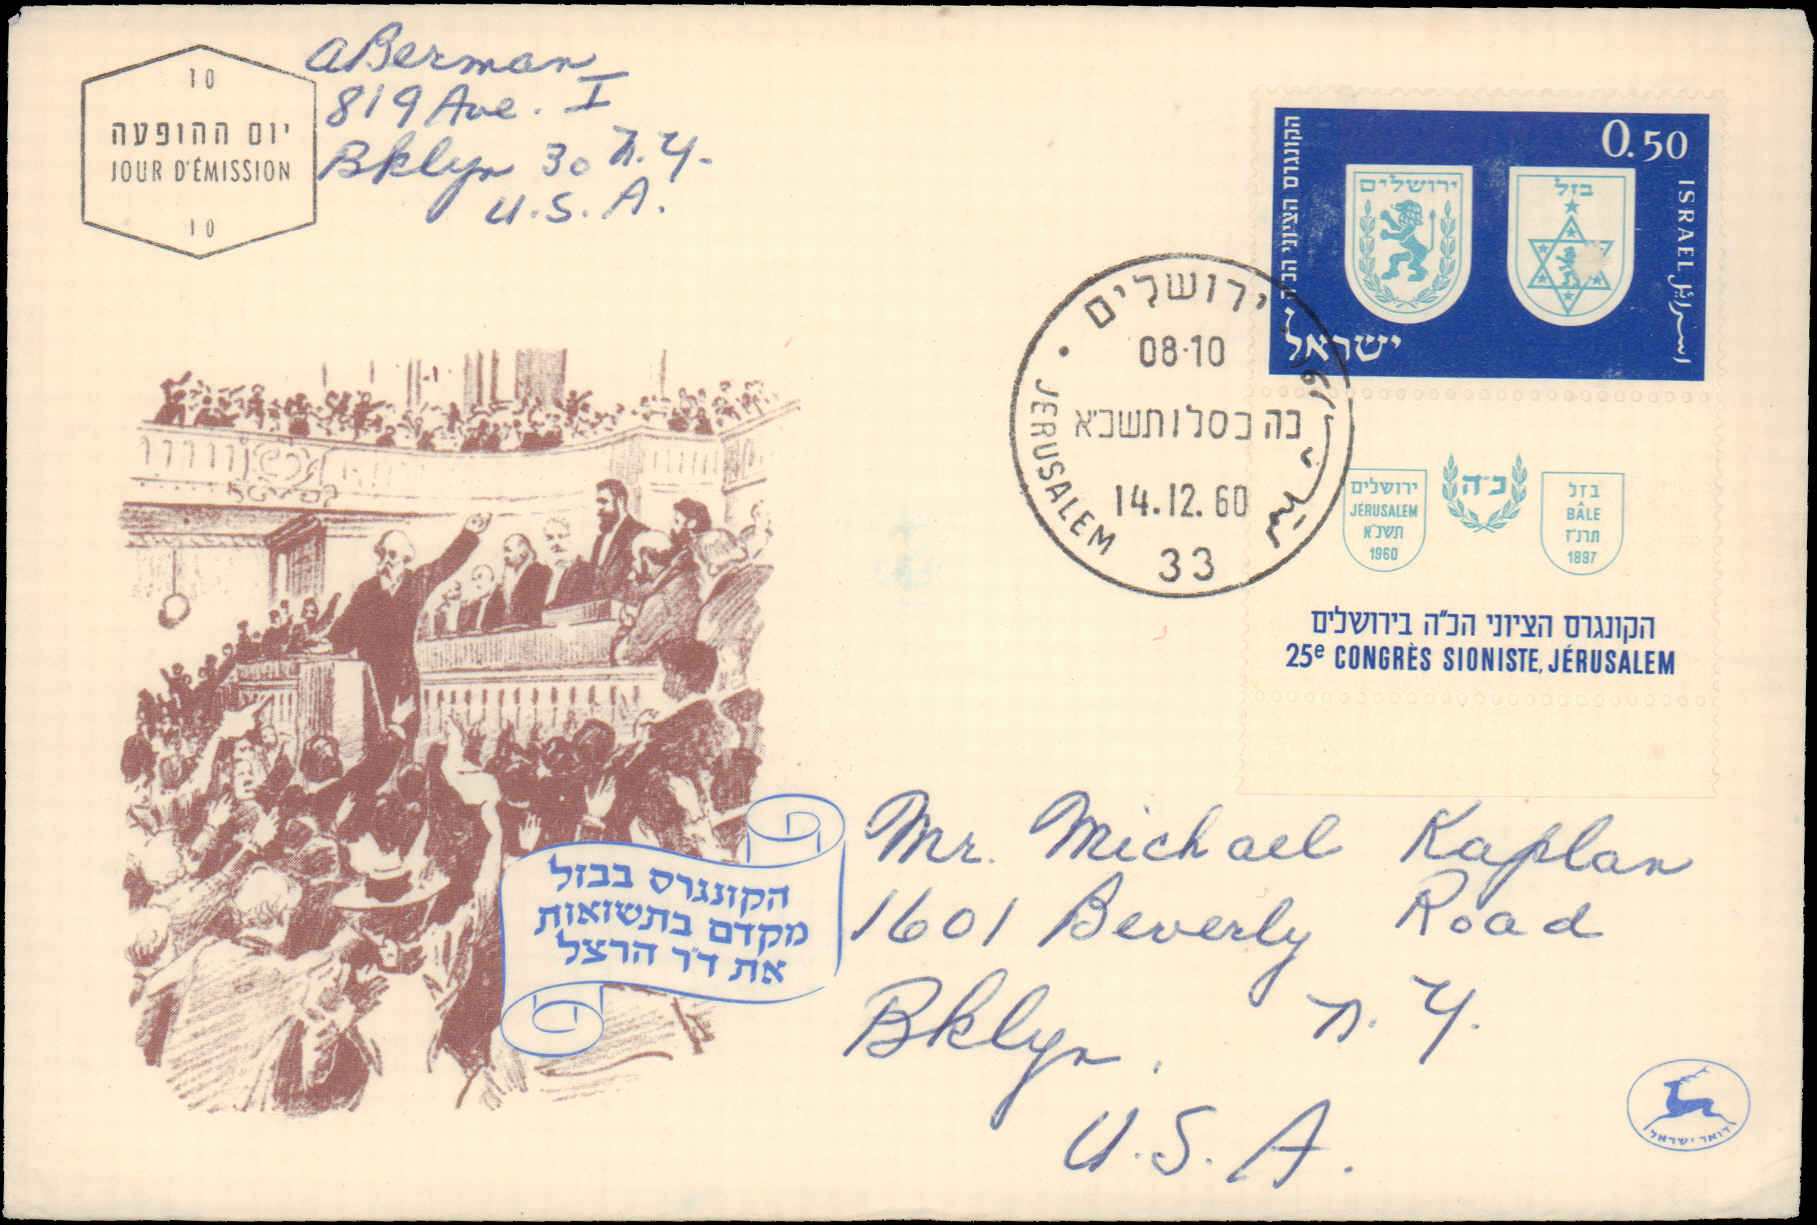 10
יום ההופעה
JOUR D'ÉMISSION
10
ABerman
819 Ave. I
Bklyn 30 N.Y.
U.S.A.
0.50
הקונגרס הציוני הכ"ה
ירושלים
בזל
ISRAEL
اسرائيل
ישראל
ירושלים
08-10
כה כסלו תשכ"א
14.12.60
JERUSALEM
33
ירושלים
JÉRUSALEM
תשכ"א
1960
כ"ה
בזל
BÂLE
תרנ"ז
1897
הקונגרס הציוני הכ"ה בירושלים
25e CONGRÈS SIONISTE, JÉRUSALEM
הקונגרס בבזל
מקדם בתשואות
את ד"ר הרצל
Mr. Michael Kaplan
1601 Beverly Road
Bklyn. N.Y.
U.S.A.
דואר ישראל